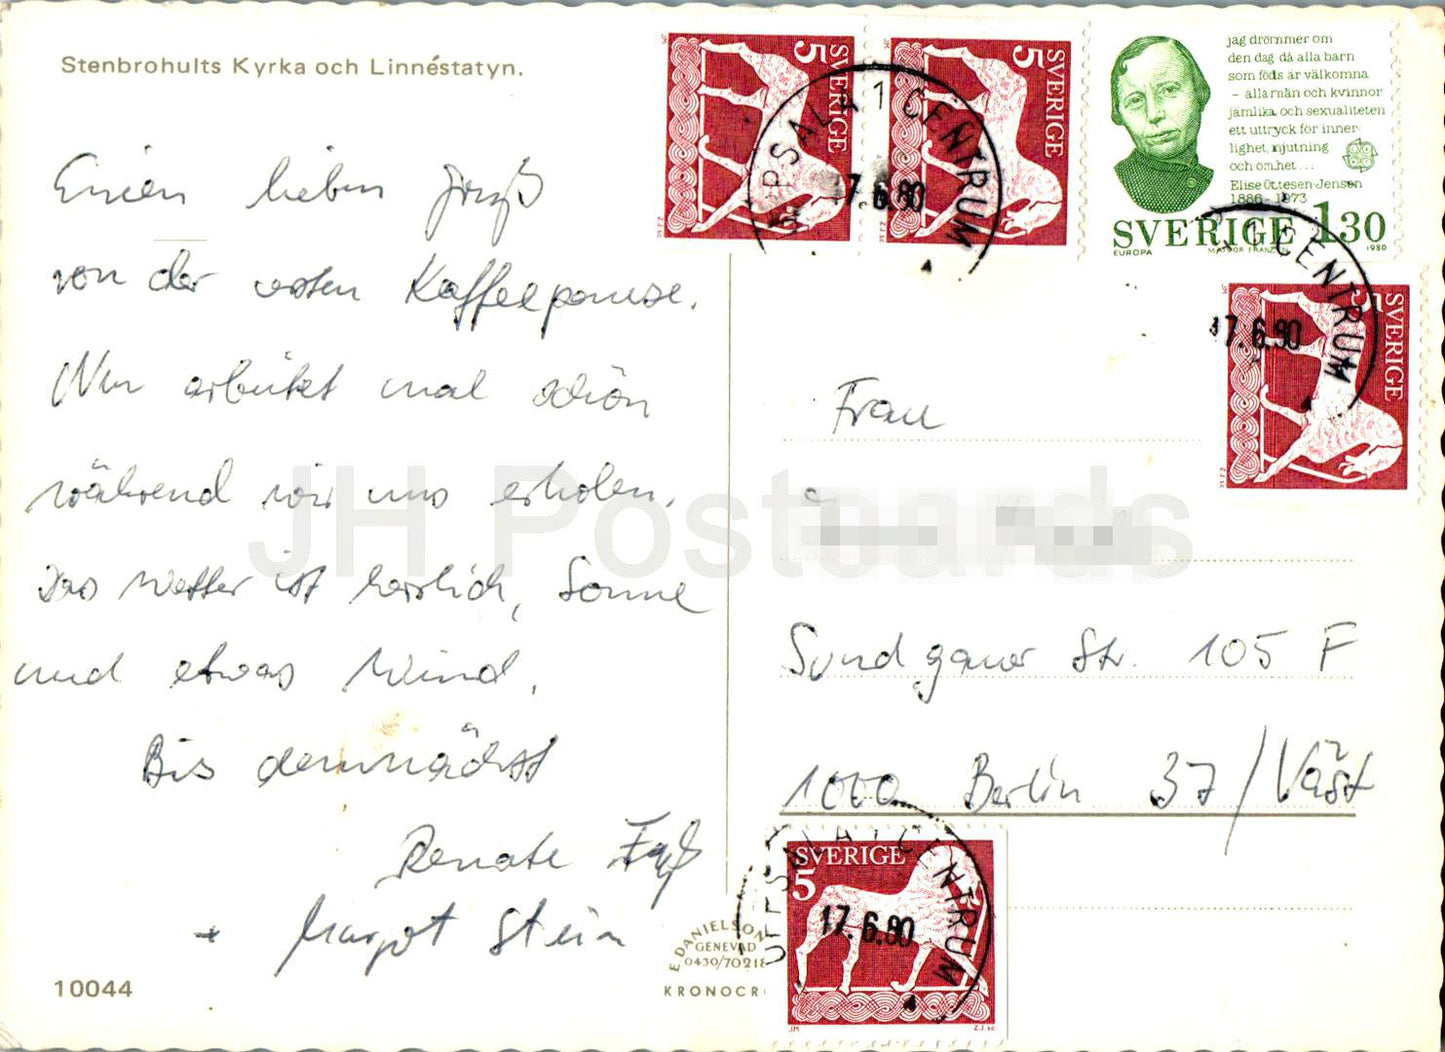 Stenbrohults Kyrka och Linnéstatyn.
Einen lieben Gruß
von der ersten Kaffeepause.
Nun arbeitet mal schön
während wir uns erholen.
Das Wetter ist herrlich, Sonne
und etwas Wind.
Bis demnächst
Renate
+ Margot Stein
10044
E. DANIELSON
GENEVAD
0430/70218
KRONOCR
SVERIGE 5
SVERIGE 5
UPPSALA 1 CENTRUM
17.6.80
jag drömmer om
den dag då alla barn
som föds är välkomna
– alla män och kvinnor
jämlika och sexualiteten
ett uttryck för inner-
lighet, njutning
och ömhet...
Elise Ottesen-Jensen
1886-1973
SVERIGE 1.30
EUROPA MAJVOR FRANZÉN 1980
SVERIGE 5
CENTRUM
17.6.80
Frau
Sundgauer Str. 105 F
1000 Berlin 37/Väst
SVERIGE
5
UPPSALA 1 CENTRUM
17.6.80
JM Z.J. sc
JH Postcards